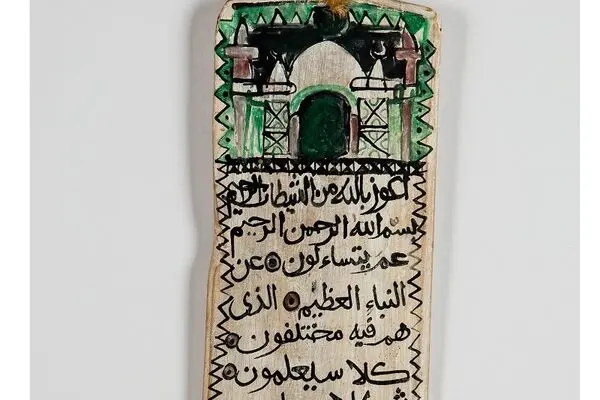 اعوز بالله من الشيطان الرجيم
بسم الله الرحمن الرحيم
عم يتساءلون عن
النباء العظيم الذي
هم فيه مختلفون
كلا سيعلمون